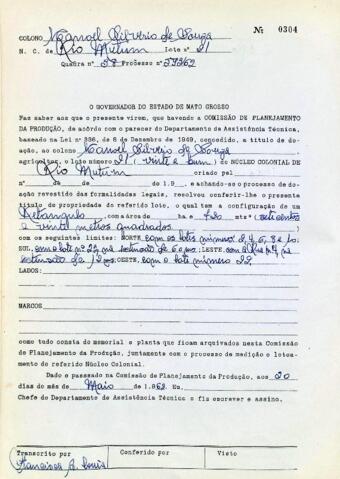 Nº 0304
COLONO Manoel Silverio de Souza
N. C. de Rio Mutum lote nº 21
Quadra nº 38 Processo nº
O GOVERNADOR DO ESTADO DE MATO GROSSO
Faz saber aos que o presente virem, que havendo a COMISSÃO DE PLANEJAMENTO
DA PRODUÇÃO, de acôrdo com o parecer do Departamento de Assistência Técnica,
baseada na Lei nº 336, de 6 de Dezembro de 1949, concedido, a título de doa-
ção, ao colono Manoel Silverio de Souza
agricultor, o lote número 21 (vinte e um) do NÚCLEO COLONIAL DE
Rio Mutum criado pel
nº de de de 1.9 e achando-se o processo de do-
ação revestido das formalidades legais, resolveu conferir-lhe o presente
título de propriedade do referido lote, o qual tem a configuração de um
Retangulo com a área de ha e 720 mts² (setecentos
e vinte metros quadrados)
com os seguintes limites: NORTE com os lotes número
SUL com o lote nº 22, na extensão de 60 ms; LESTE, com
extensão de 12 ms; OESTE, com o lote número 22,
LADOS:
MARCOS
como tudo consta do memorial e planta que ficam arquivados nesta Comissão
de Planejamento da Produção, juntamente com o processo de medição e lotea-
mento do referido Núcleo Colonial.
Dado e passado na Comissão de Planejamento da Produção, aos 20
dias do mês de Maio de 1.962. Eu,
Chefe do Departamento de Assistência Técnica o fiz escrever e assino.
Transcrito por Conferido por Visto
Francisca